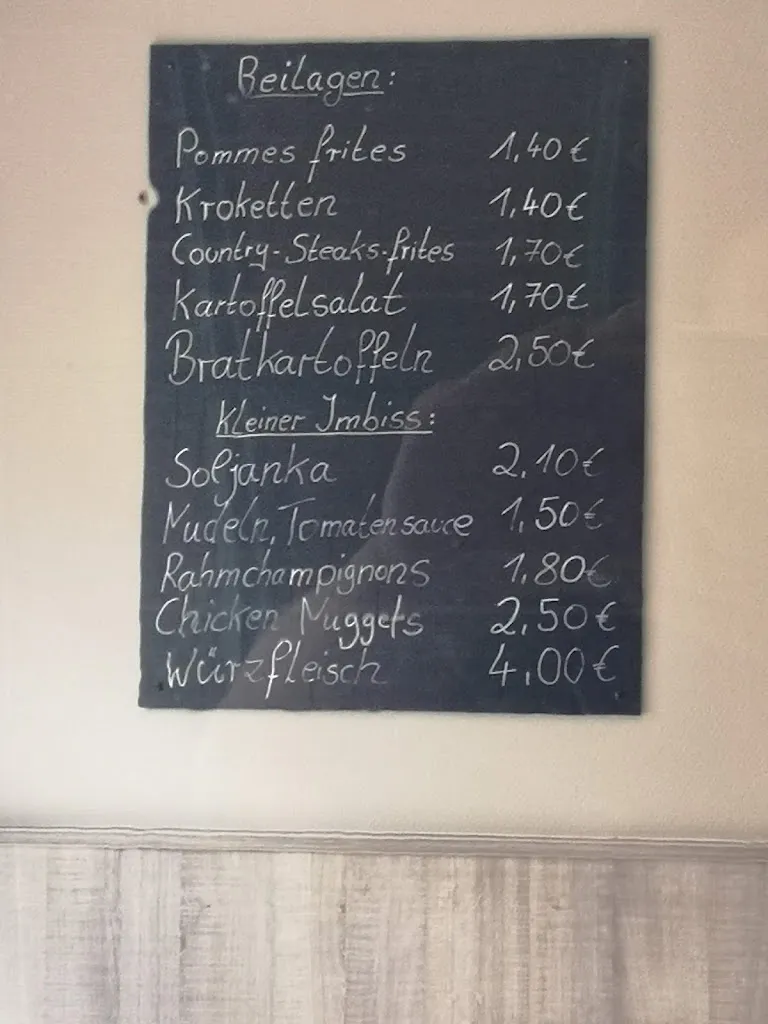 Beilagen:
Pommes frites 1,40€
Kroketten 1,40€
Country-Steaks-frites 1,70€
Kartoffelsalat 1,70€
Bratkartoffeln 2,50€
Kleiner Imbiss:
Soljanka 2,10€
Nudeln, Tomatensauce 1,50€
Rahmchampignons 1,80€
Chicken Nuggets 2,50€
Würzfleisch 4,00€